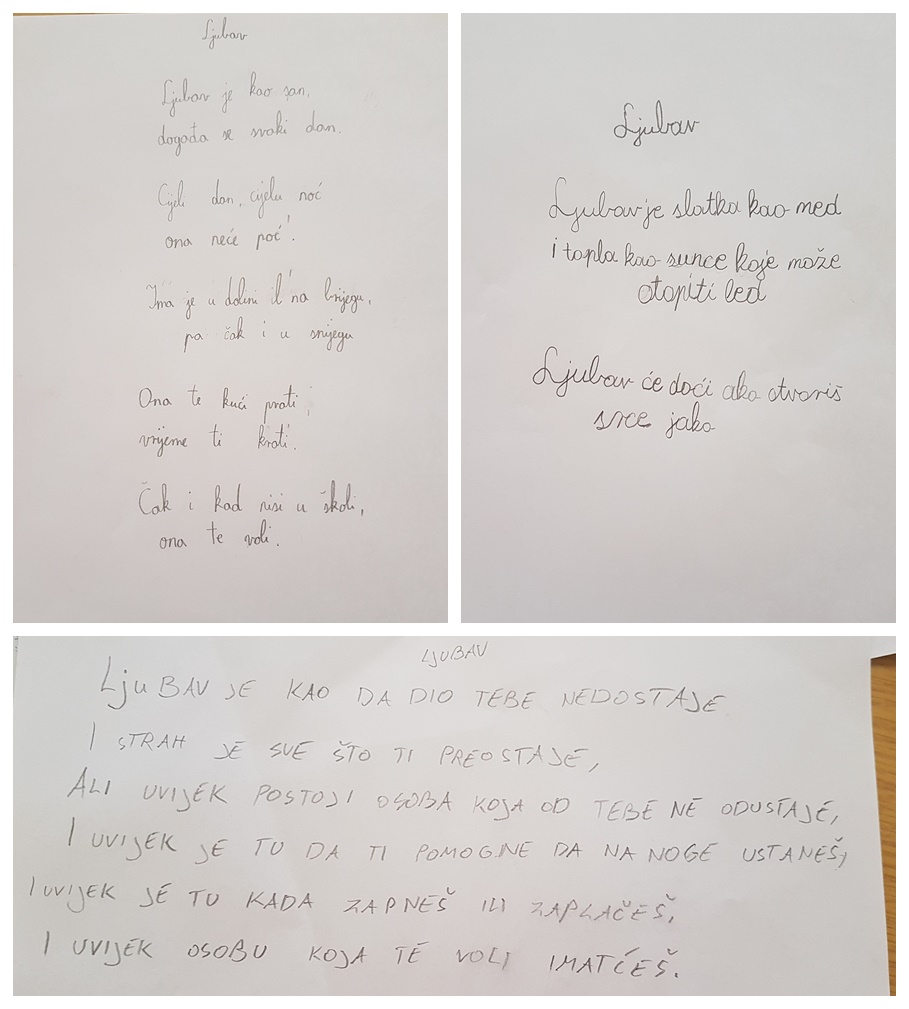 Ljubav
Ljubav je kao san,
događa se svaki dan.
Cijeli dan, cijelu noć
ona neće poć'.
Ima je u dolini il' na brijegu,
pa čak i u snijegu
Ona te kući prati,
vrijeme ti krati.
Čak i kad nisi u školi,
ona te voli.
Ljubav
Ljubav je slatka kao med
i topla kao sunce koje može
otopiti led
Ljubav će doći ako otvoriš
srce jako
LJUBAV
LjUBAV JE KAO DA DIO TEBE NEDOSTAJE
I STRAH JE SVE ŠTO TI PREOSTAJE,
ALI UVIJEK POSTOJI OSOBA KOJA OD TEBE NE ODUSTAJE,
I UVIJEK JE TU DA TI POMOGNE DA NA NOGE USTANEŠ,
I UVIJEK JE TU KADA ZAPNEŠ ILI ZAPLAČEŠ,
I UVIJEK OSOBU KOJA TE VOLI IMATĆEŠ.